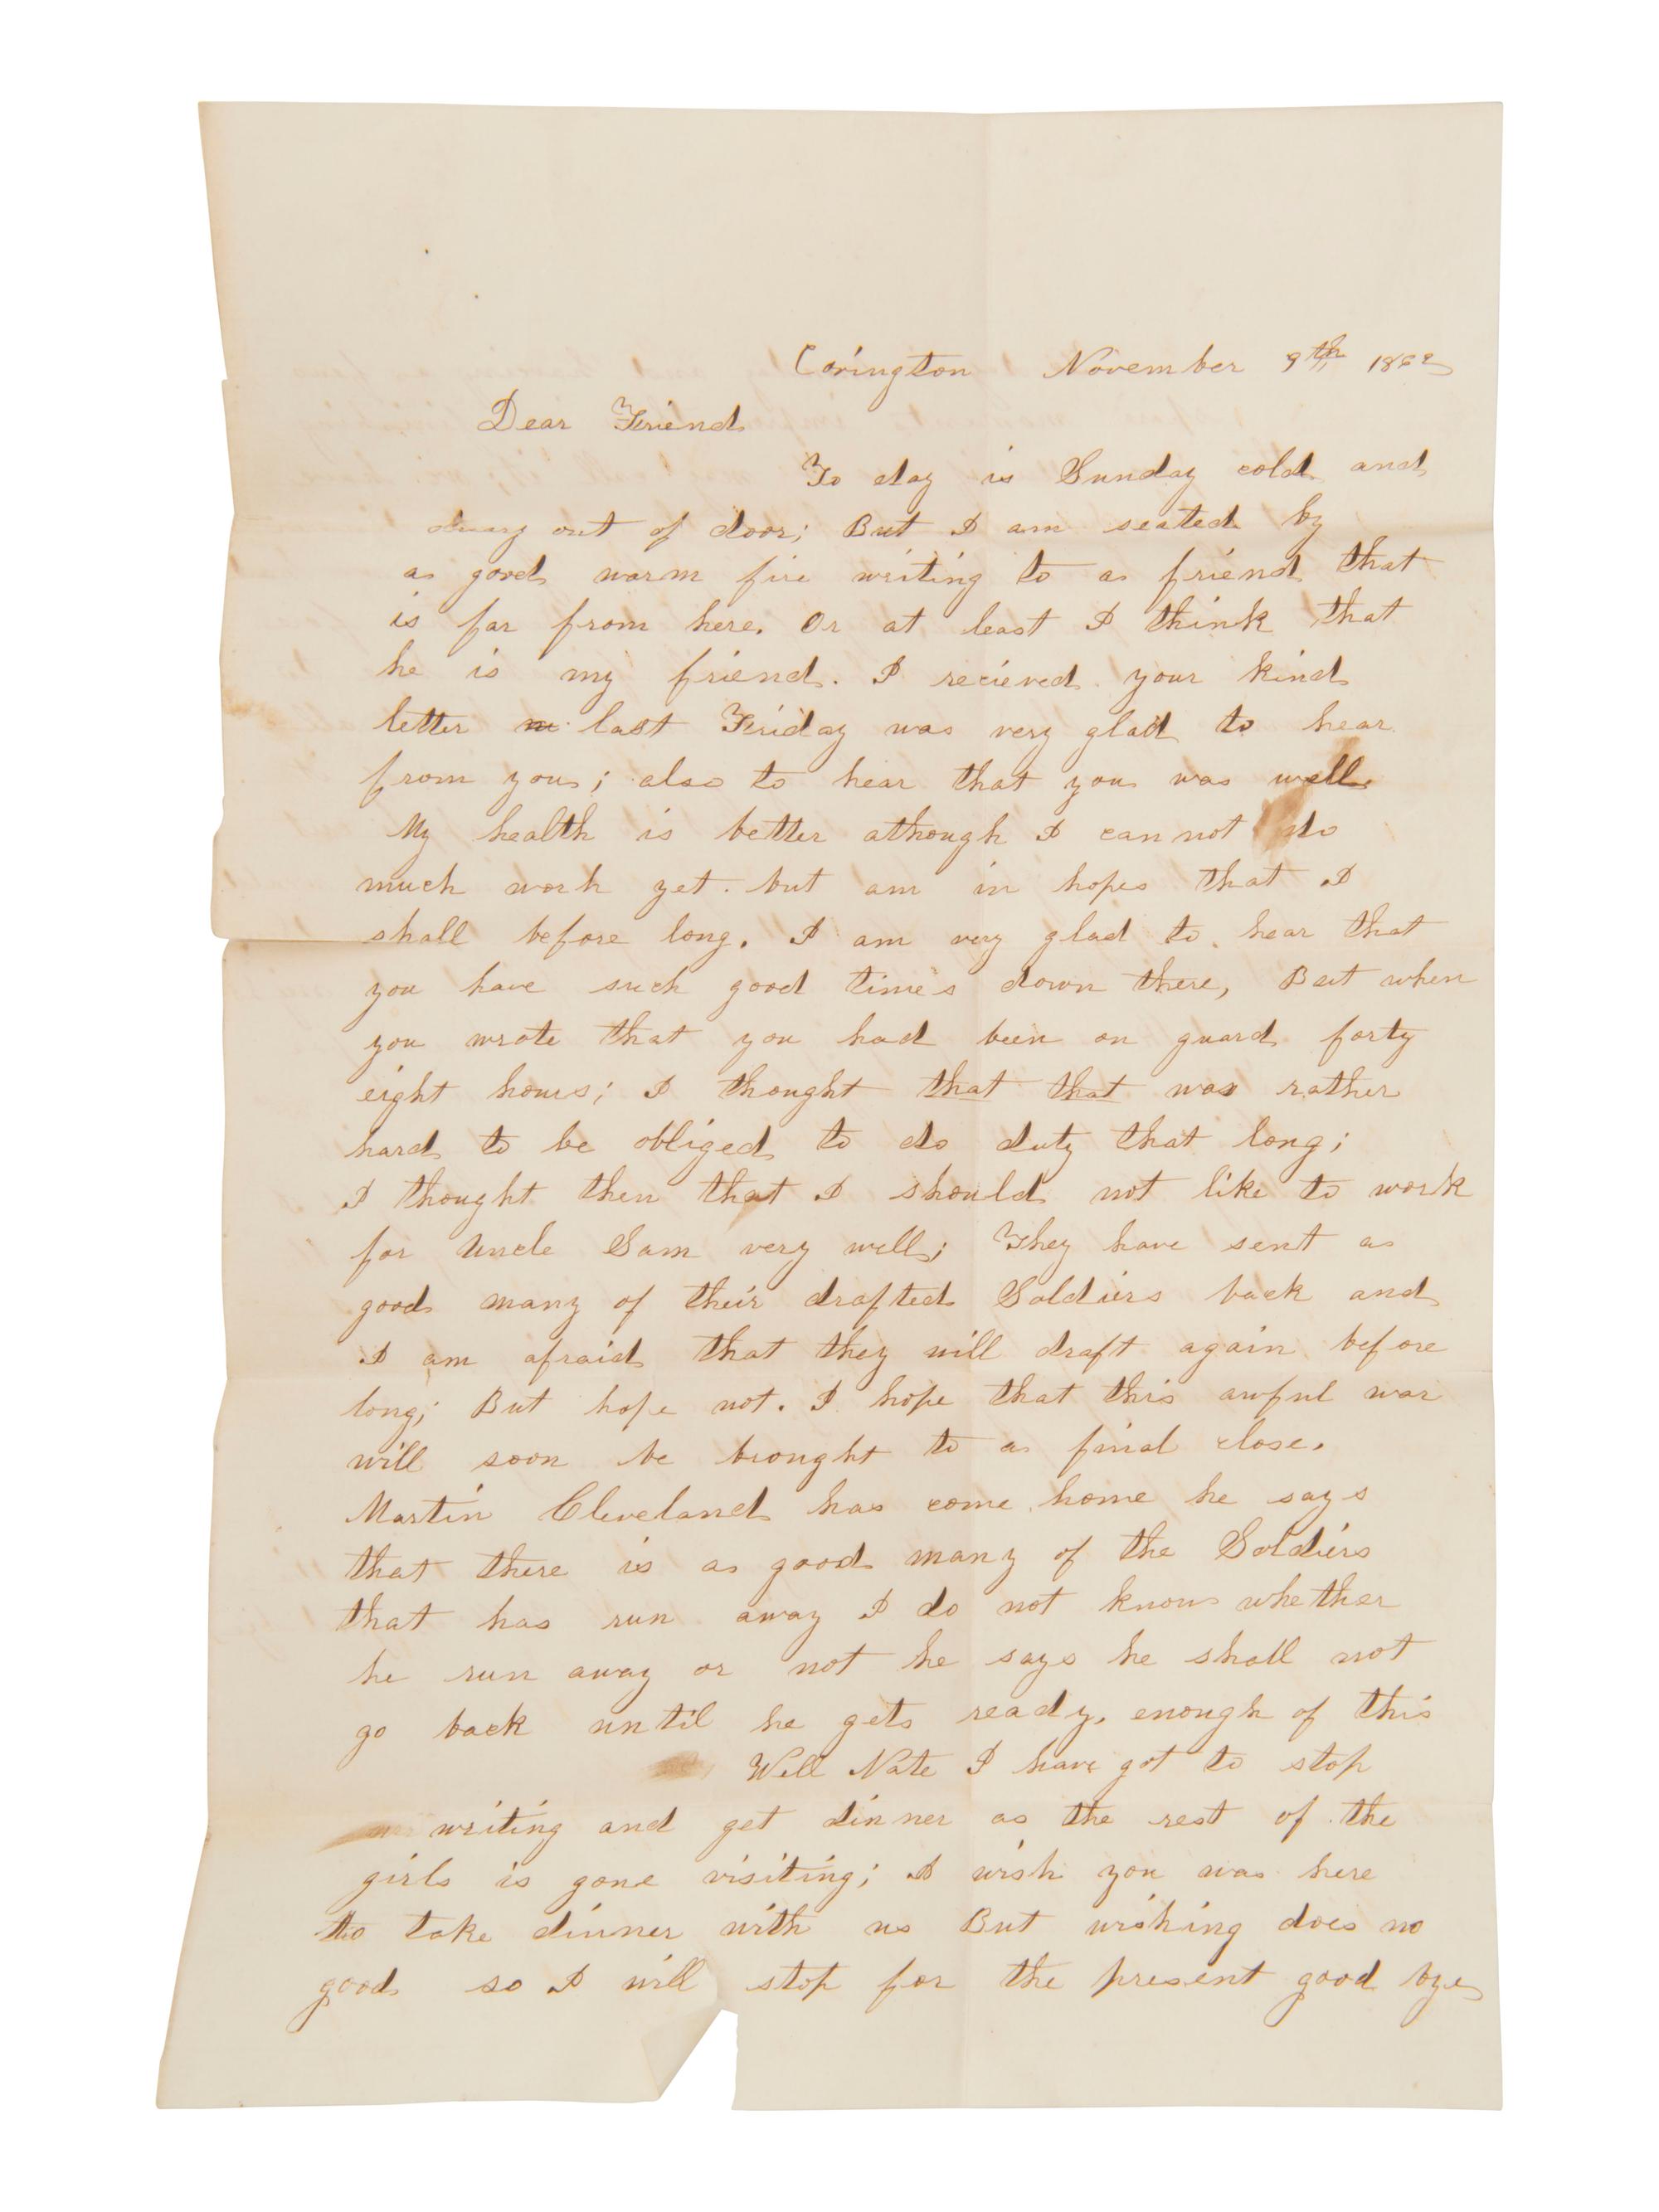 Covington November 9th 1862
Dear Friend
To day is Sunday cold and
dreary out of door; But I am seated by
a good warm fire writing to a friend that
is far from here. Or at least I think that
he is my friend. I recieved your kind
letter last Friday was very glad to hear
from you; also to hear that you was well.
My health is better athough I can not do
much work yet. but am in hopes that I
shall before long. I am very glad to hear that
you have such good times down there, But when
you wrote that you had been on guard forty
eight hours; I thought that that was rather
hard to be obliged to do duty that long;
I thought then that I should not like to work
for Uncle Sam very well; They have sent a
good many of their drafted Soldiers back and
I am afraid that they will draft again before
long; But hope not. I hope that this awful war
will soon be brought to a final close.
Martin Cleveland has come home he says
that there is a good many of the Soldiers
that has run away I do not know whether
he run away or not he says he shall not
go back until he gets ready, enough of this
Well Nate I have got to stop
writing and get dinner as the rest of the
girls is gone visiting; I wish you was here
to take dinner with us But wishing does no
good so I will stop for the present good bye